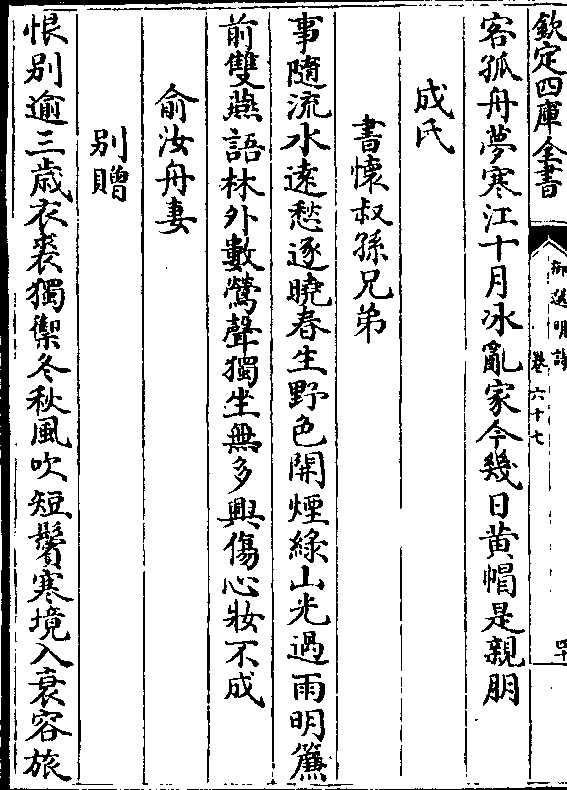 欽定四庫全書
御選明詩
卷六十七
客孤舟夢寒江十月冰亂家今幾日黄帽是親朋
成氏
書懷叔孫兄弟
事隨流水遠愁逐曉春生野色開煙綠山光過雨明簾
前雙燕語林外數鶯聲獨坐無多興傷心妝不成
俞汝舟妻
别贈
恨别逾三歳衣裘獨禦冬秋風吹短鬢寒境入衰容旅